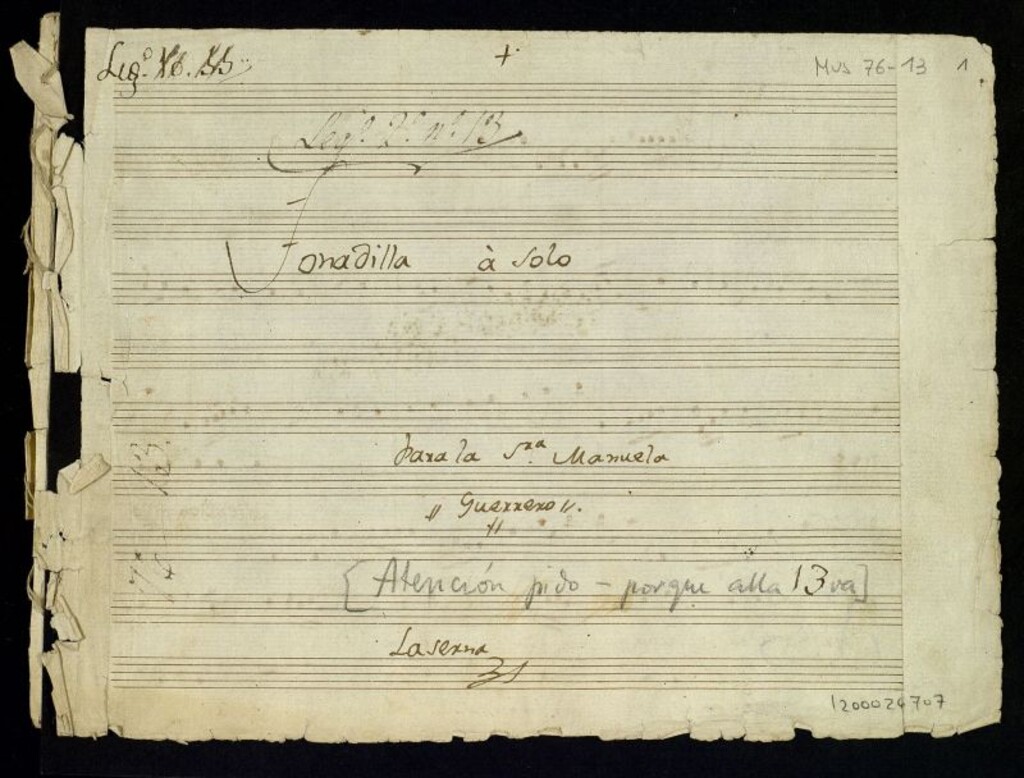 +
MUS 76-13 1
Legº. 2º. nº. 13
Tonadilla à Solo
Para la Sra. Manuela
„ Guerrero „.
[Atención pido - porque alla va]
13
Laserna
1200024707